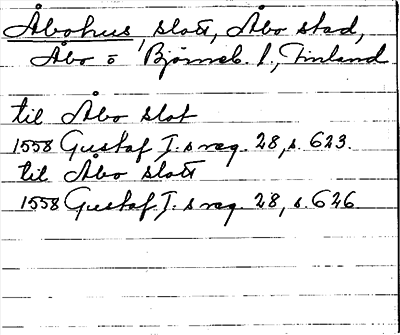 Åbohus, slott, Åbo stad,
Åbo o Björneb. l., Finland
til Åbo slot
1558 Gustaf I.s reg. 28, s. 623.
til Åbo slott
1558 Gustaf I. s reg. 28, s. 626